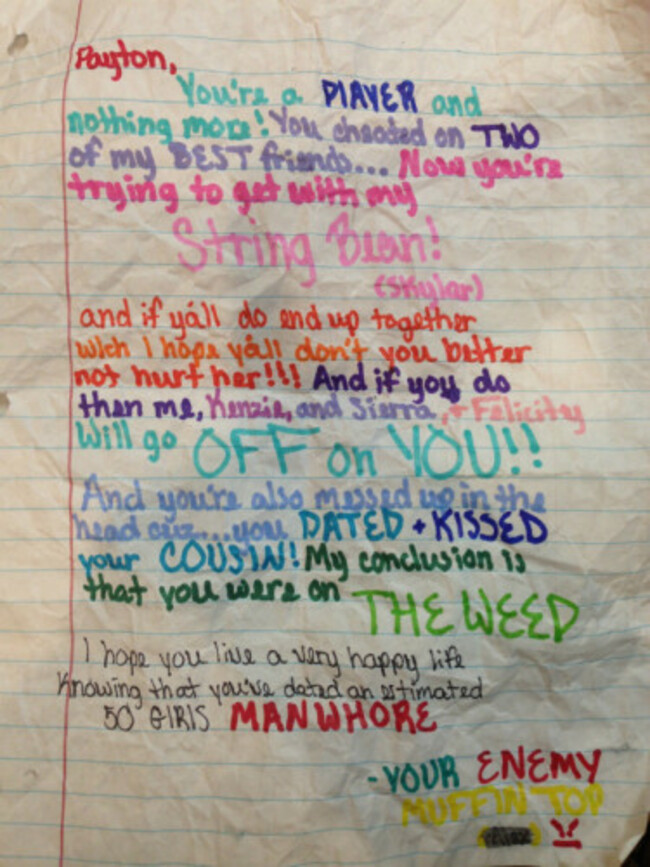 Payton,
You're a PlAYER and
nothing more! You cheated on TWO
of my BEST friends... Now you're
trying to get with my
String Bean!
(Skylar)
and if yáll do end up together
wich I hope yáll don't you better
not hurt her!!! And if you do
then me, Kenzie, and Sierra, + Felicity
Will go OFF on YOU!!
And you're also messed up in the
head cuz...you DATED + KISSED
your COUSIN! My conclusion is
that you were on THE WEED
I hope you live a very happy life
Knowing that you've dated an estimated
50 GIRlS MANWHORE
-YOUR ENEMY
MUFFIN TOP